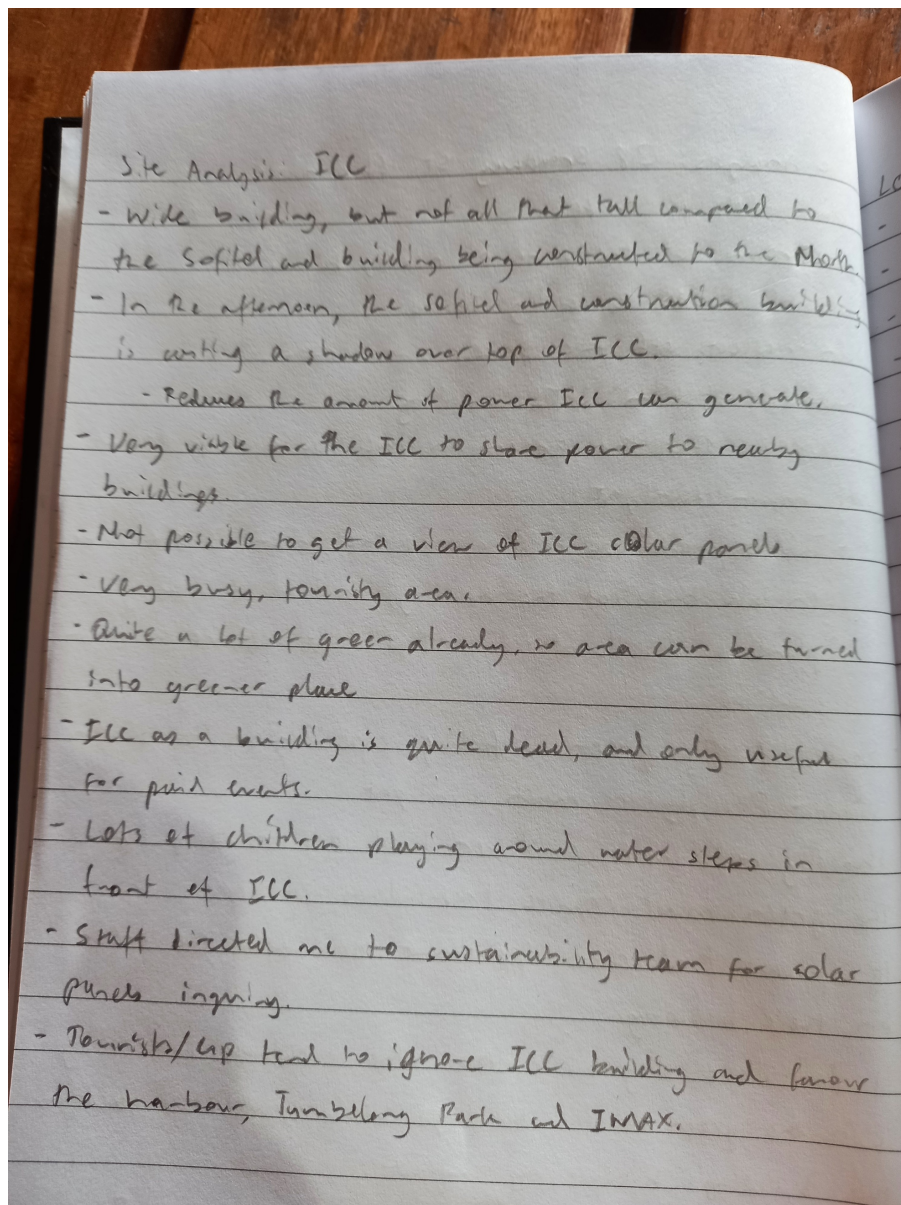 Site Analysis: ICC
- Wide building, but not all that tall compared to
the Sofitel and building being constructed to the North.
- In the afternoon, the sofitel and construction building
is casting a shadow over top of ICC.
- Reduces the amount of power ICC can generate.
- Very viable for the ICC to share power to nearby
buildings.
- Not possible to get a view of ICC solar panels
- Very busy, touristy area.
- Quite a lot of green already, so area can be turned
into greener place
- ICC as a building is quite dead, and only useful
for paid events.
- Lots of children playing around water steps in
front of ICC.
- Staff directed me to sustainability team for solar
panels inquiry.
- Tourists/ tend to ignore ICC building and favour
the harbour, Tumbelong Park and IMAX.
LO
-
-
-